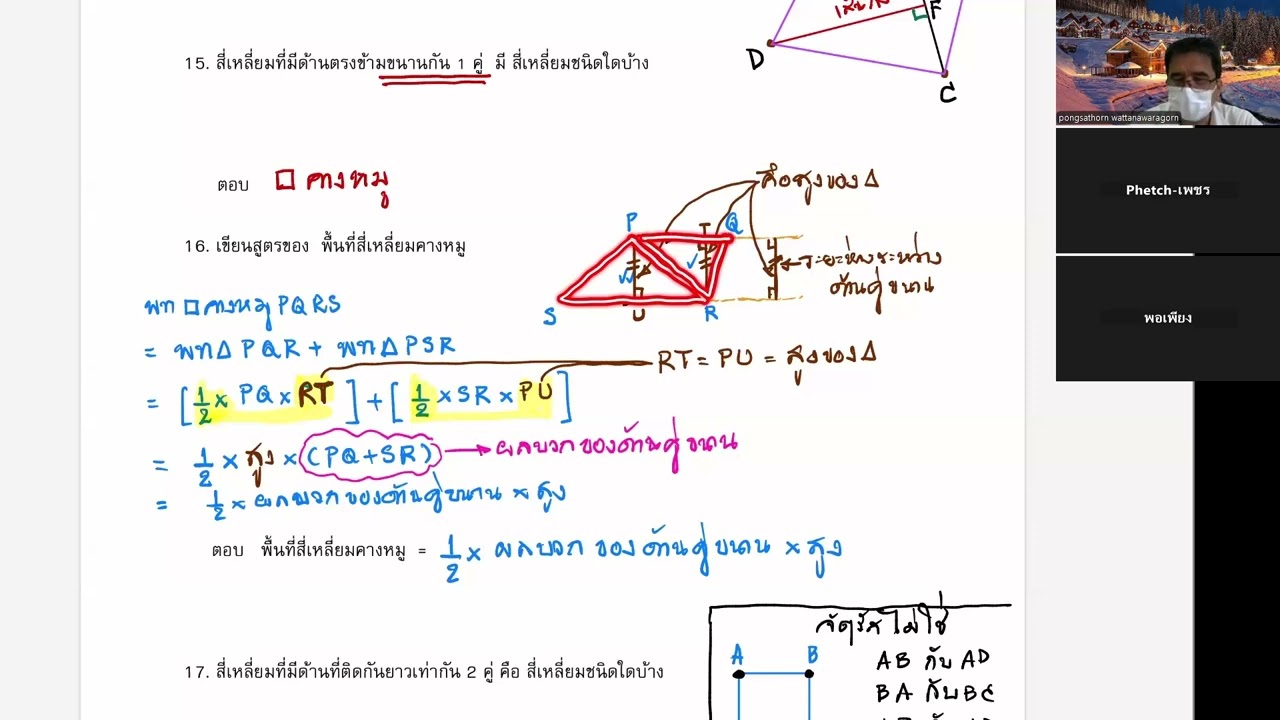 D
F
C
15. สี่เหลี่ยมที่มีด้านตรงข้ามขนานกัน 1 คู่ มี สี่เหลี่ยมชนิดใดบ้าง
ตอบ □ คางหมู
คือสูงของ Δ
16. เขียนสูตรของ พื้นที่สี่เหลี่ยมคางหมู
P T Q
ระยะห่างระหว่าง
ด้านคู่ขนาน
S U R
พท □ คางหมู PQRS
= พท Δ PQR + พท Δ PSR
RT = PU = สูงของ Δ
= [1/2 × PQ × RT] + [1/2 × SR × PU]
= 1/2 × สูง × (PQ + SR) → ผลบวกของด้านคู่ขนาน
= 1/2 × ผลบวกของด้านคู่ขนาน × สูง
ตอบ พื้นที่สี่เหลี่ยมคางหมู = 1/2 × ผลบวก ของ ด้านคู่ขนาน × สูง
จัตุรัส ไม่ใช่
A B
AB กับ AD
17. สี่เหลี่ยมที่มีด้านที่ติดกันยาวเท่ากัน 2 คู่ คือ สี่เหลี่ยมชนิดใดบ้าง
BA กับ BC
pongsathorn wattanawaragorn
Phetch-เพชร
พอเพียง